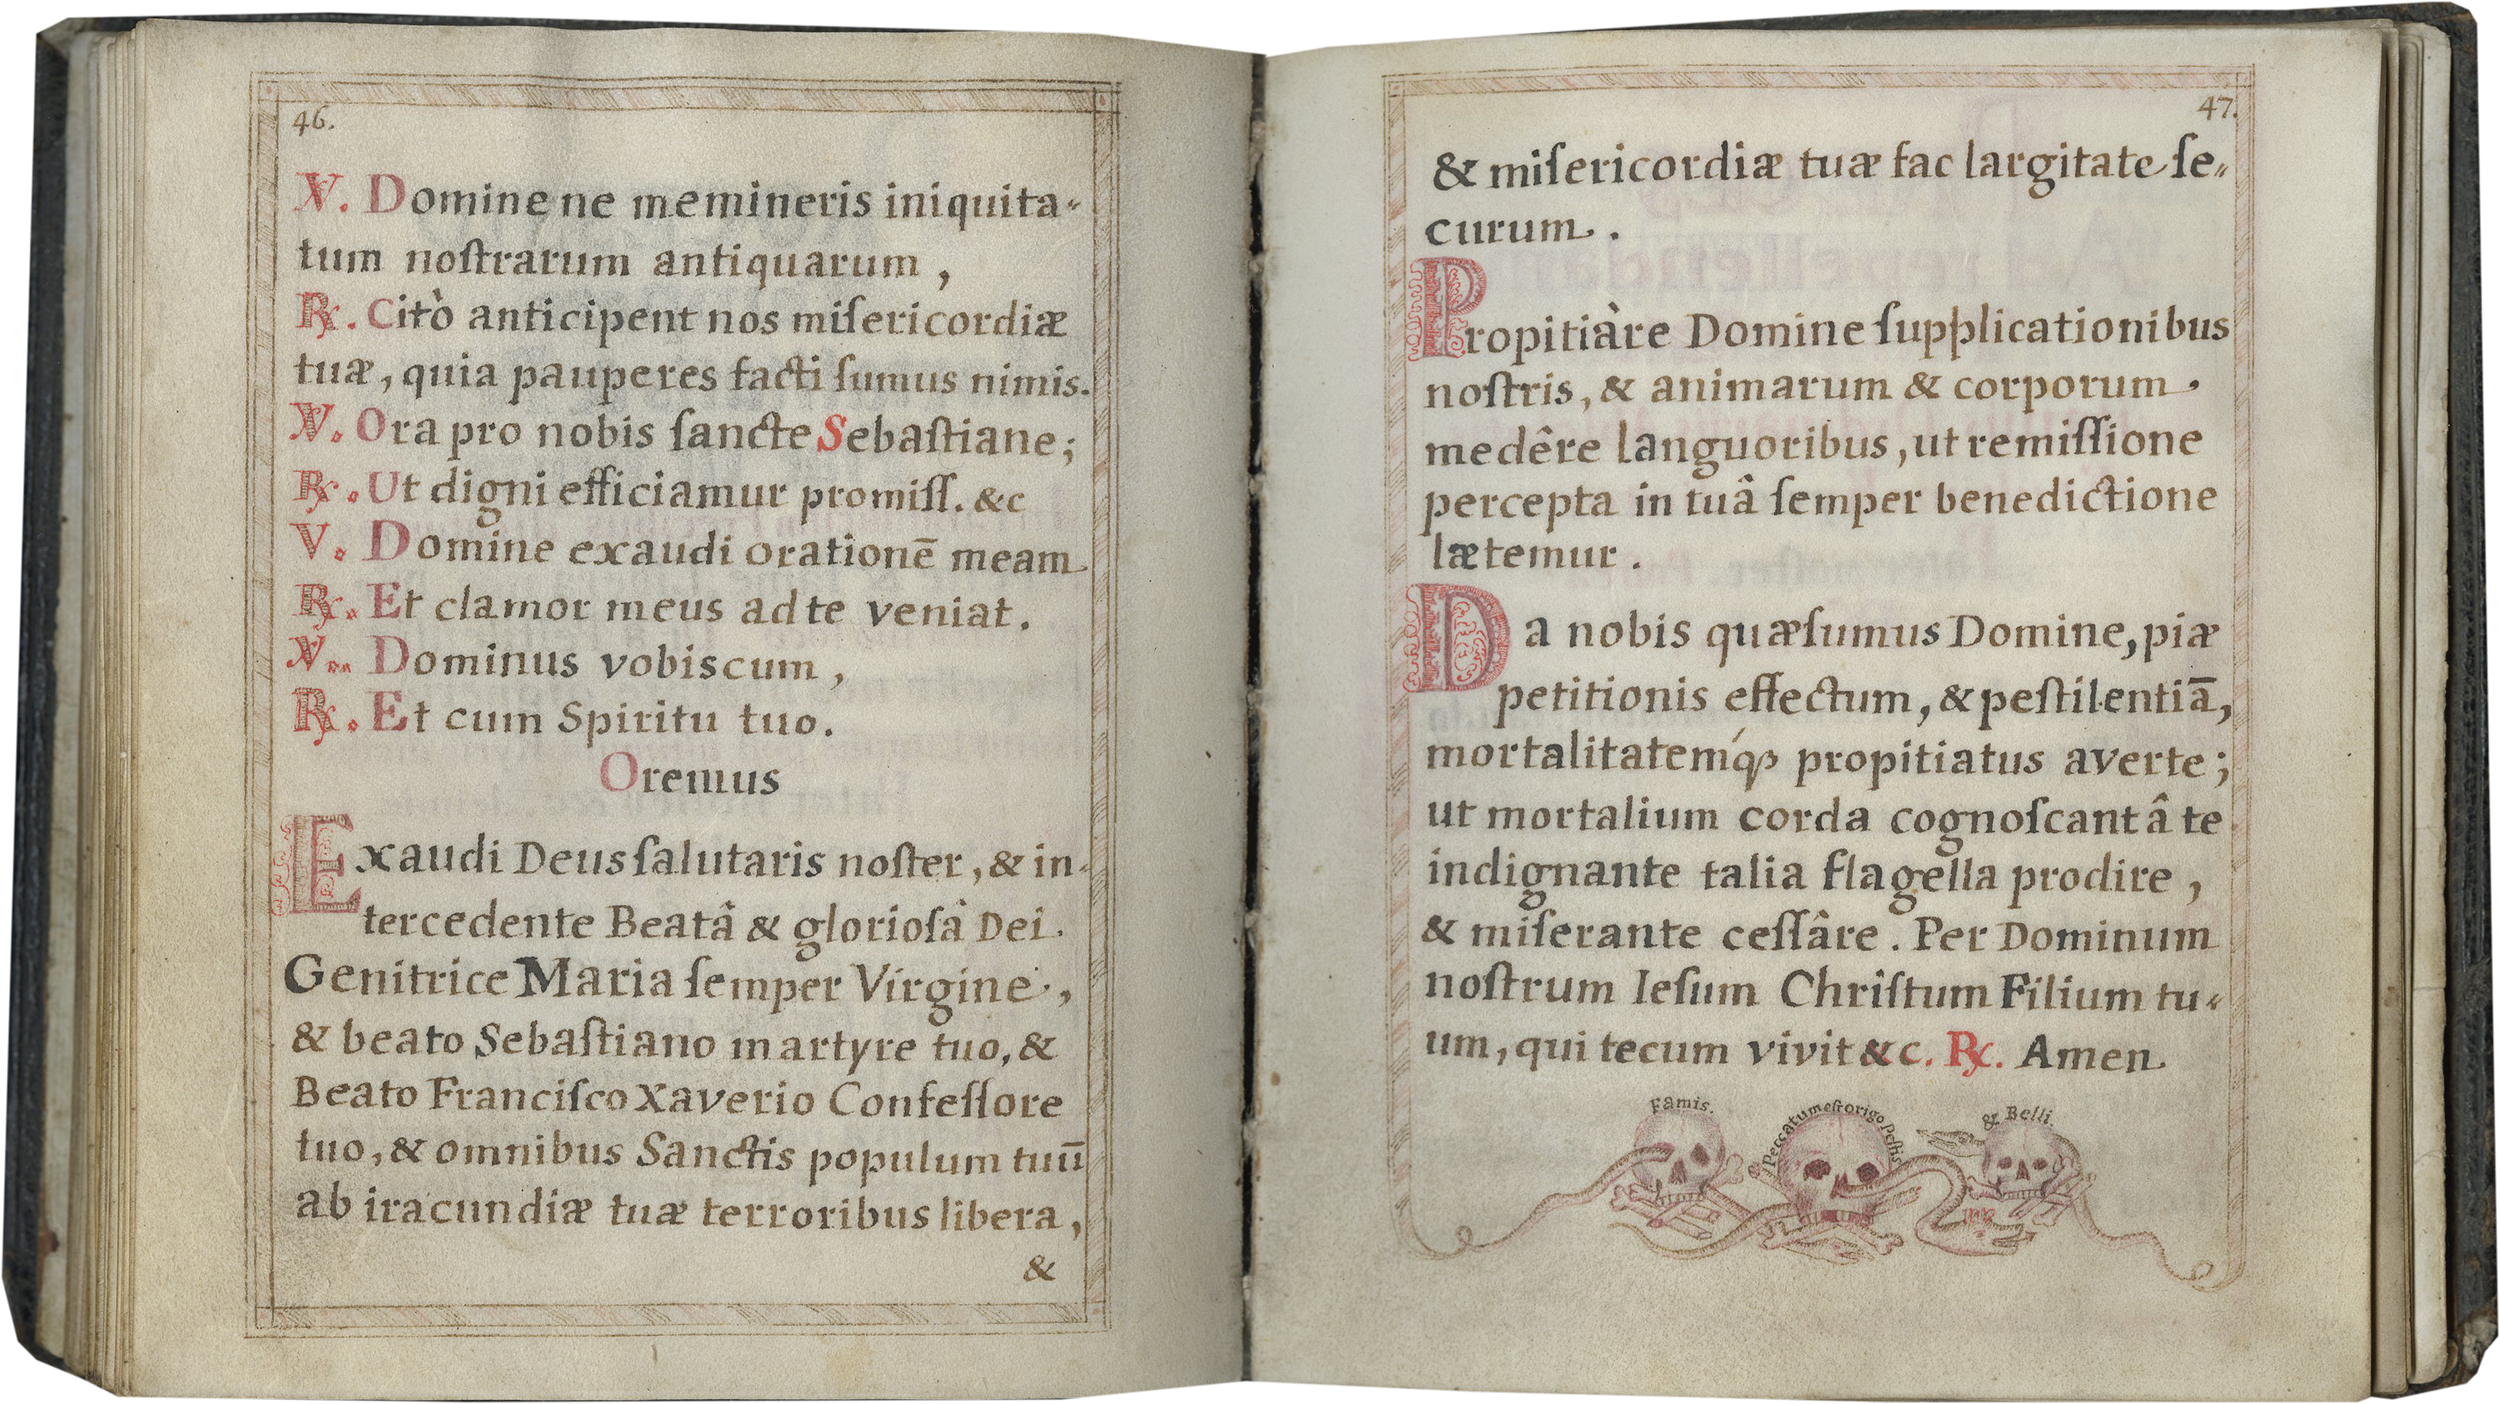 46.
℣. Domine ne memineris iniquita-
tum noſtrarum antiquarum ,
℟. Citò anticipent nos miſericordiæ
tuæ, quia pauperes facti ſumus nimis.
℣. Ora pro nobis ſancte Sebaſtiane;
℟. Ut digni efficiamur promiſſ. &c
V. Domine exaudi orationē meam
℟. Et clamor meus ad te veniat.
℣. Dominus vobiscum ,
℟. Et cum Spiritu tuo.
Oremus
Exaudi Deus ſalutaris noſter, & in-
tercedente Beatâ & glorioſâ Dei
Genitrice Maria ſemper Virgine,
& beato Sebaſtiano martyre tuo, &
Beato Franciſco Xaverio Confeſſore
tuo, & omnibus Sanctis populum tuū
ab iracundiæ tuæ terroribus libera,
&
47.
& miſericordiæ tuæ fac largitate ſe-
curum.
Propitiàre Domine ſupplicationibus
noſtris, & animarum & corporum
medêre languoribus, ut remiſſione
percepta in tuâ ſemper benedictione
lætemur.
Da nobis quæſumus Domine, piæ
petitionis effectum, & peſtilentiā,
mortalitatemq́ꝫ propitiatus averte;
ut mortalium corda cognoſcant â te
indignante talia flagella prodire ,
& miſerante ceſſâre. Per Dominum
noſtrum Ieſum Chriſtum Filium tu-
um, qui tecum vivit &c. ℟. Amen
Famis.
Peccatum eſt origo Peſtis
& Belli.